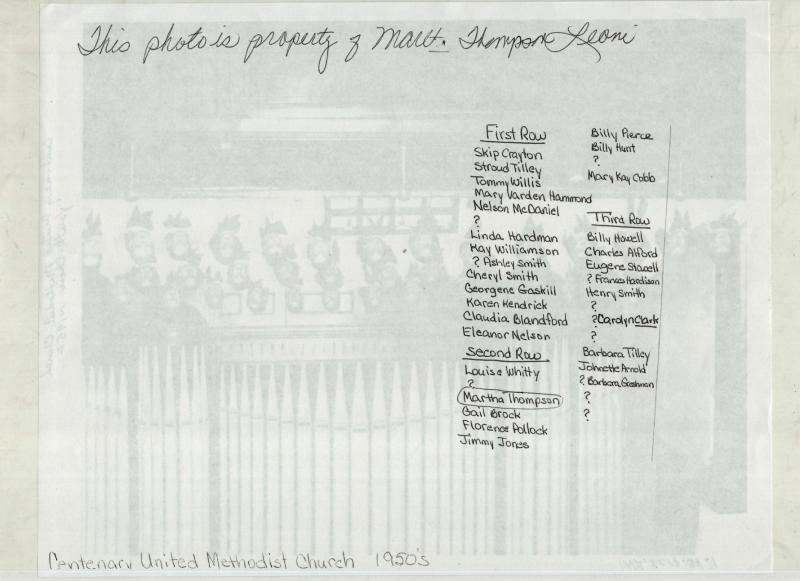 This photo is property of Mart. Thompson Leoni
First Row
Skip Crayton
Stroud Tilley
Tommy Willis
Mary Varden Hammond
Nelson McDaniel
?
Linda Hardman
Kay Williamson
? Ashley Smith
Cheryl Smith
Georgene Gaskill
Karen Kendrick
Claudia Blandford
Eleanor Nelson
Second Row
Louise Whitty
?
Martha Thompson
Gail Brock
Florence Pollock
Jimmy Jones
Billy Pierce
Billy Hunt
?
Mary Kay Cobb
Third Row
Billy Howell
Charles Alford
Eugene Stowell
? Frances Hardison
Henry Smith
?
? Carolyn Clark
?
Barbara Tilley
Johnette Arnold
? Barbara
?
?
Centenary United Methodist Church 1950's